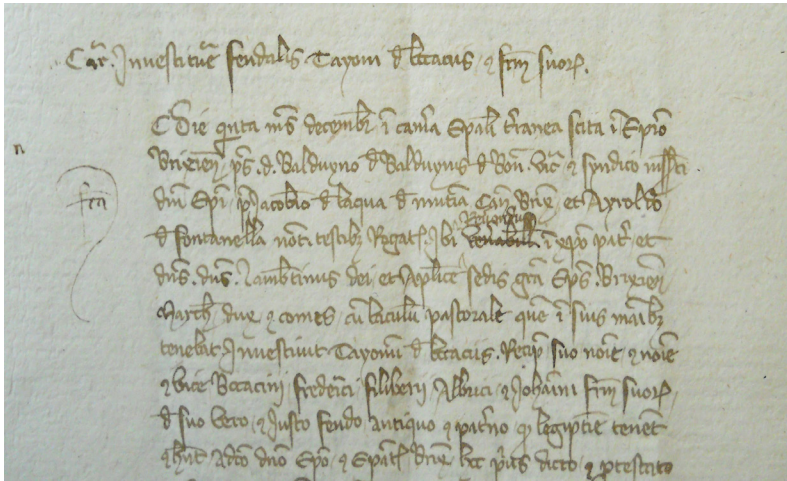 Car. Investiture feudalis Tayoni d Beccacus. et frm suor.
Die qnta ms decembr i cam̄a Epali tranea scita i Epio
Brixien. ps. d. Balduyno d Balduynis d Bon. vic et syndico
dni Epi. Jacobino d laqua d mutina Can. Brixien et Ayroldo
d fontanella noti testibz Rogat. Ibi Reverendus i xpo patr et
dns. dns. Lambtinus dei et Aplice sedis gra Eps. Brixien
March. dux et comes. cu baculu pastorale que i suis maibz
tenebat Investivit Tayonu d beccacus. Recip suo noie et noie
et vice Beccacini frederici filiberti Albrici et Iohanni frm suor.
d suo vero. et Justo feudo antiquo et patno qd legiptie tenet
et hnt adco dno Epo. et Epat. Brien hec pus dicto. et ptestato
fca
n